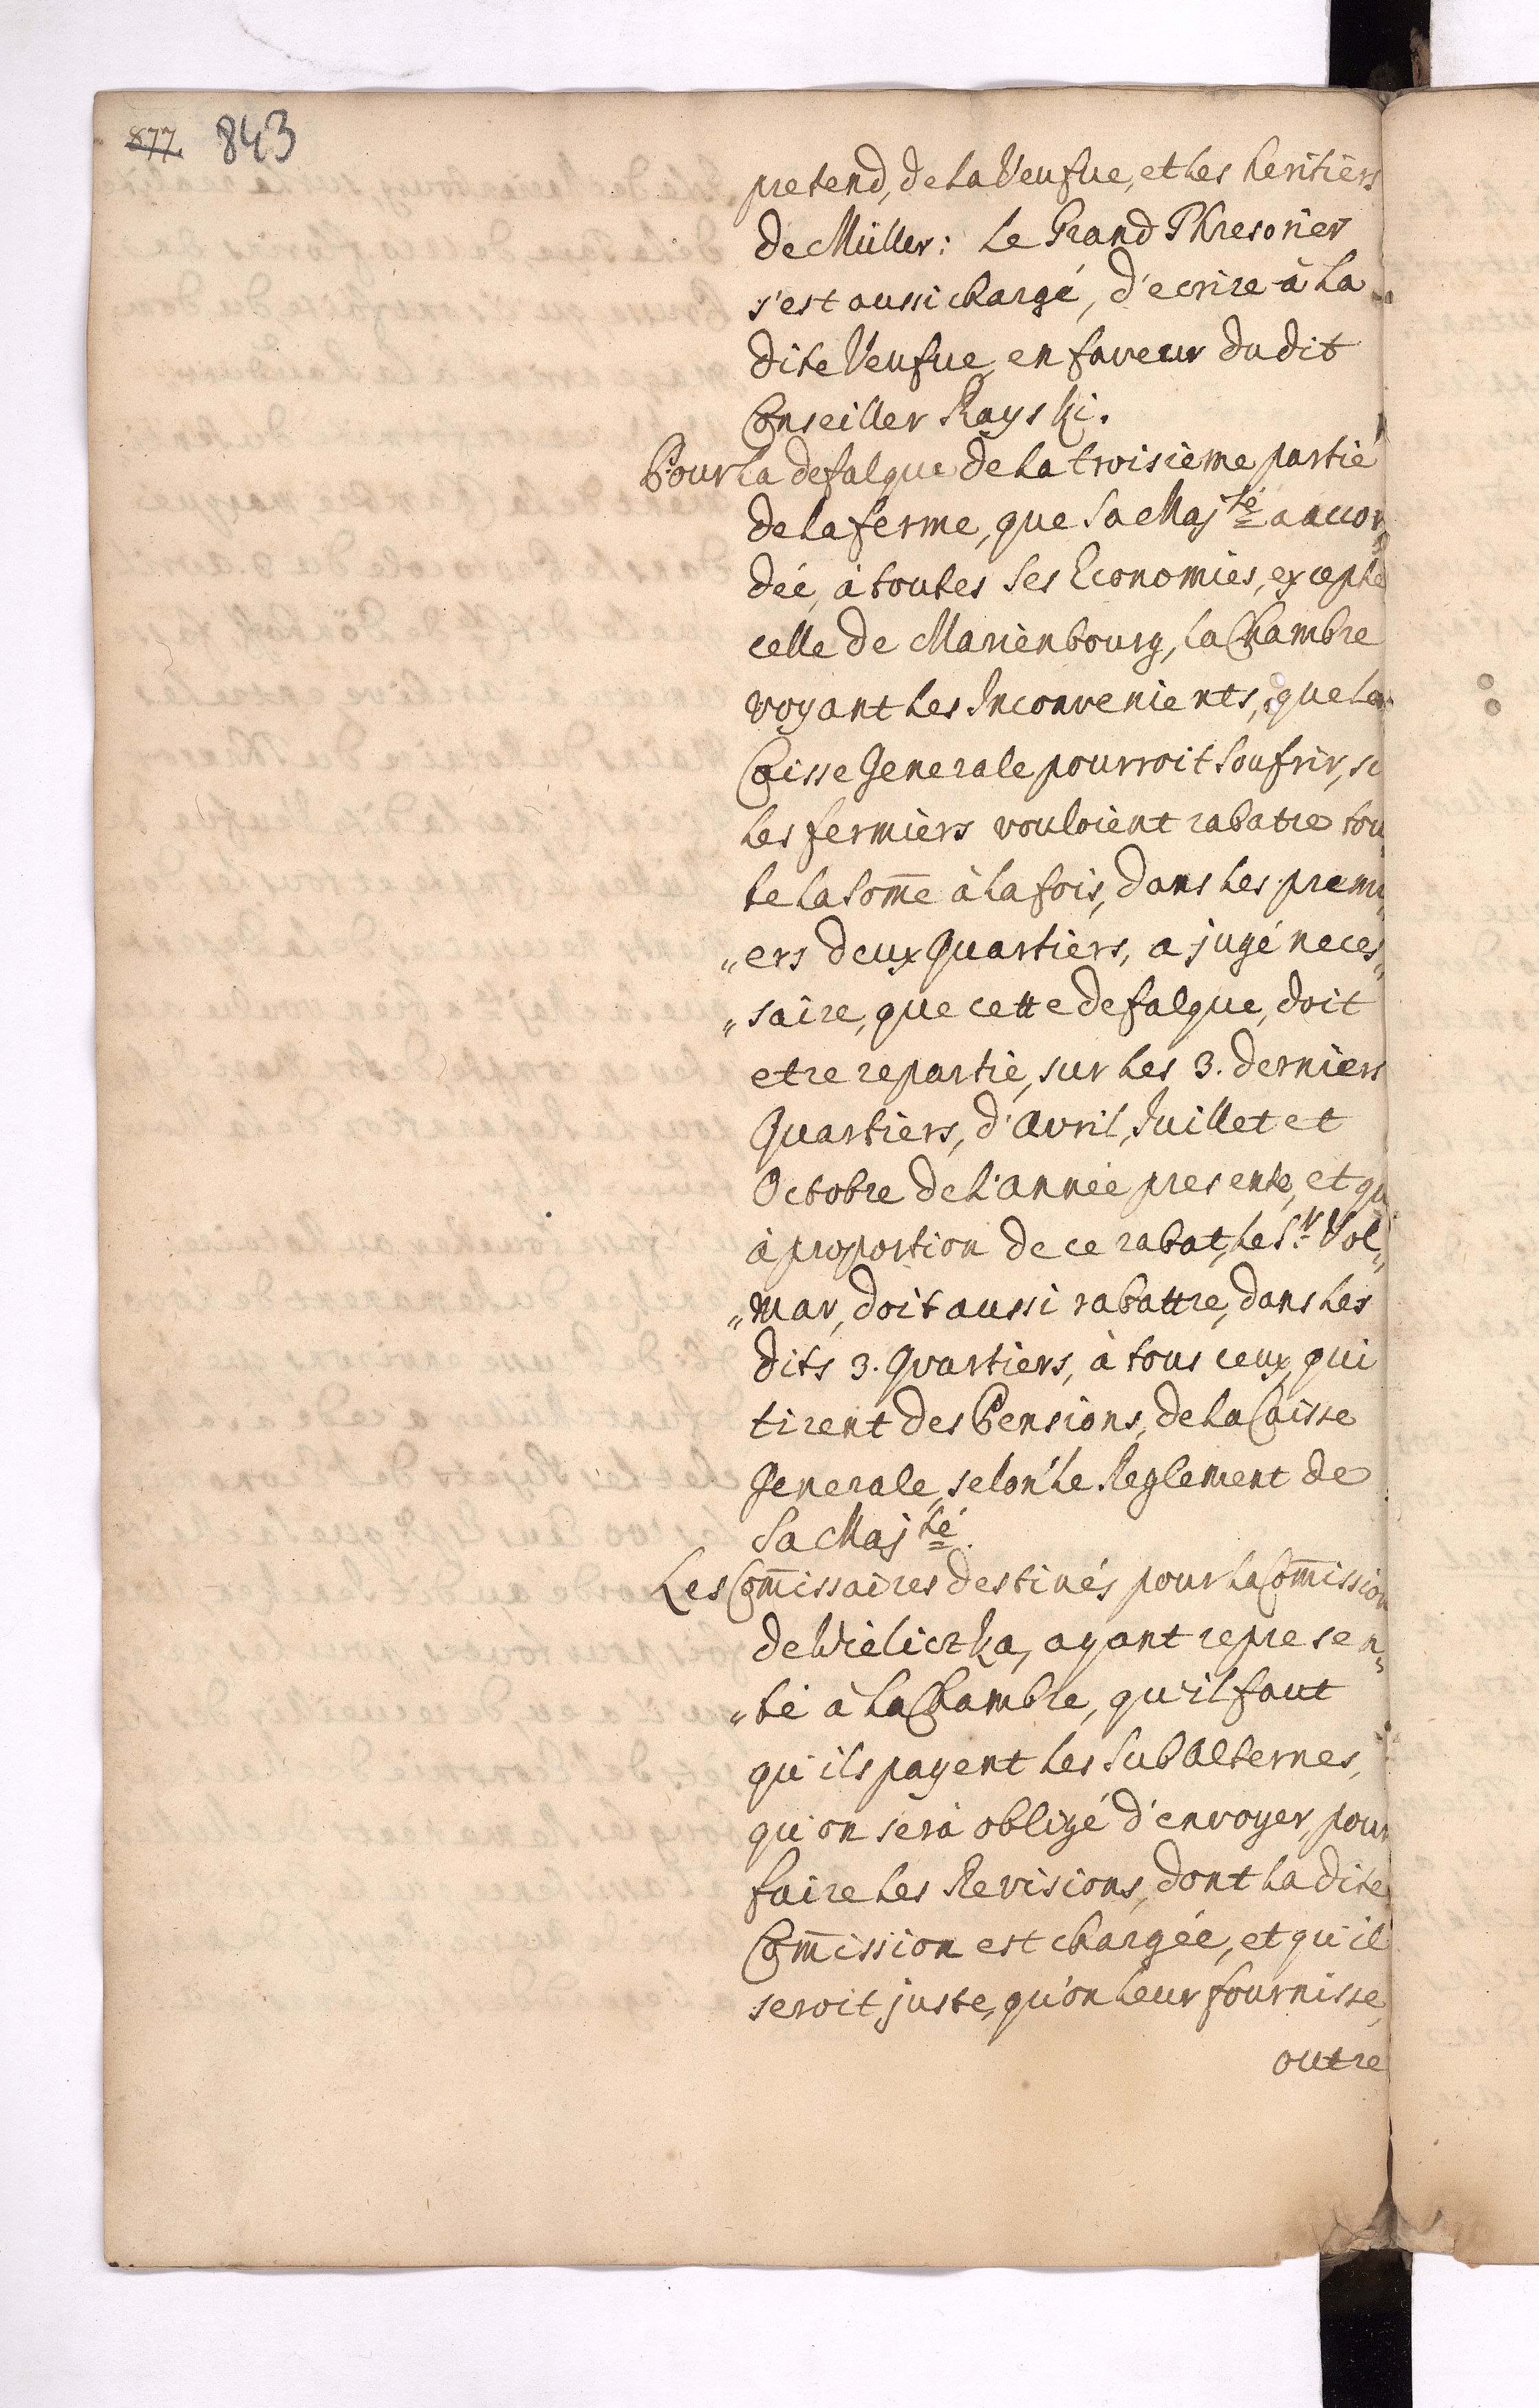 877 843
pretend, de la Veufue, et les heritiers
de Müller: Le Grand Thresorier
s'est aussi chargé, d'ecrire à la
dite Veufue, en faveur du dit
Conseiller Rayski.
Pour la defalque de la troisieme partie
de la ferme, que Sa Majté a accor„
dée, à toutes Ses Economies, excepté
celle de Marienbourg, la Chambre
voyant les Inconvenients, que la
Caisse Generale pourroit soufrir, si
les fermiers vouloient rabatre tou„
te la some à la fois, dans les premi„
„ers deux Quartiers, a jugé neces„
„saire, que cette defalque, doit
etre repartie, sur les 3. derniers
Quartiers, d'Avril, Juillet et
Octobre de l'année presente, et qu
à proportion de ce rabat, le Sr. Vol„
„mar, doit aussi rabattre, dans les
dits 3. Quartiers, à tous ceux, qui
tirent des Pensions, de la Caisse
Generale, selon le Reglement de
Sa Majté.
Les Comissaires destinés pour la Comission
de Wieliczka, ayant represen„
„té à la Chambre, qu'il faut
qu'ils payent les Subalternes,
qu'on sera obligé d'envoyer, pour
faire les Revisions, dont la dite
Comission est chargée, et qu'il
seroit juste, qu'on leur fournisse,
outre